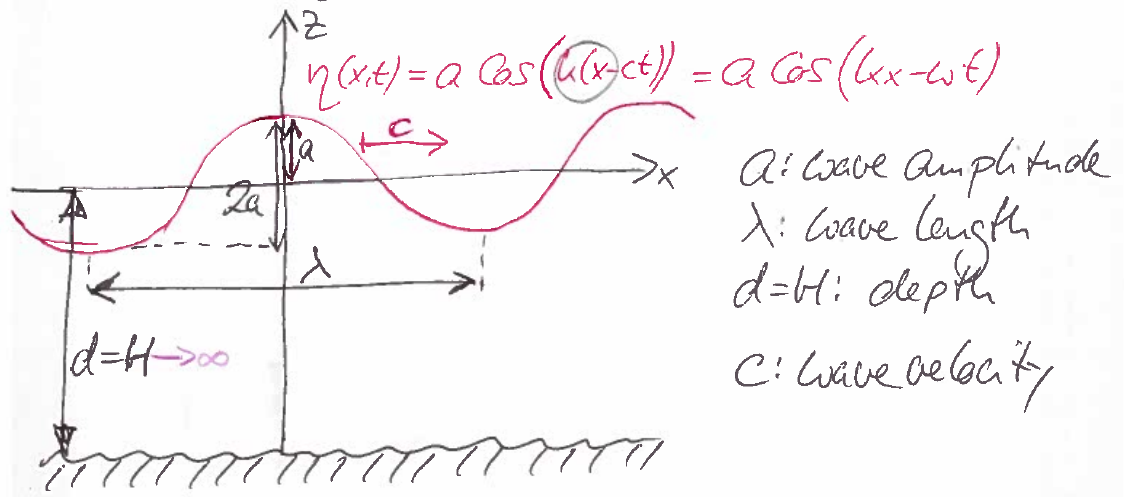 z
η(x,t) = a cos(k(x-ct)) = a cos(kx-ωt)
c
a
x
2a
λ
d=H→∞
a: wave amplitude
λ: wave length
d=H: depth
c: wave velocity